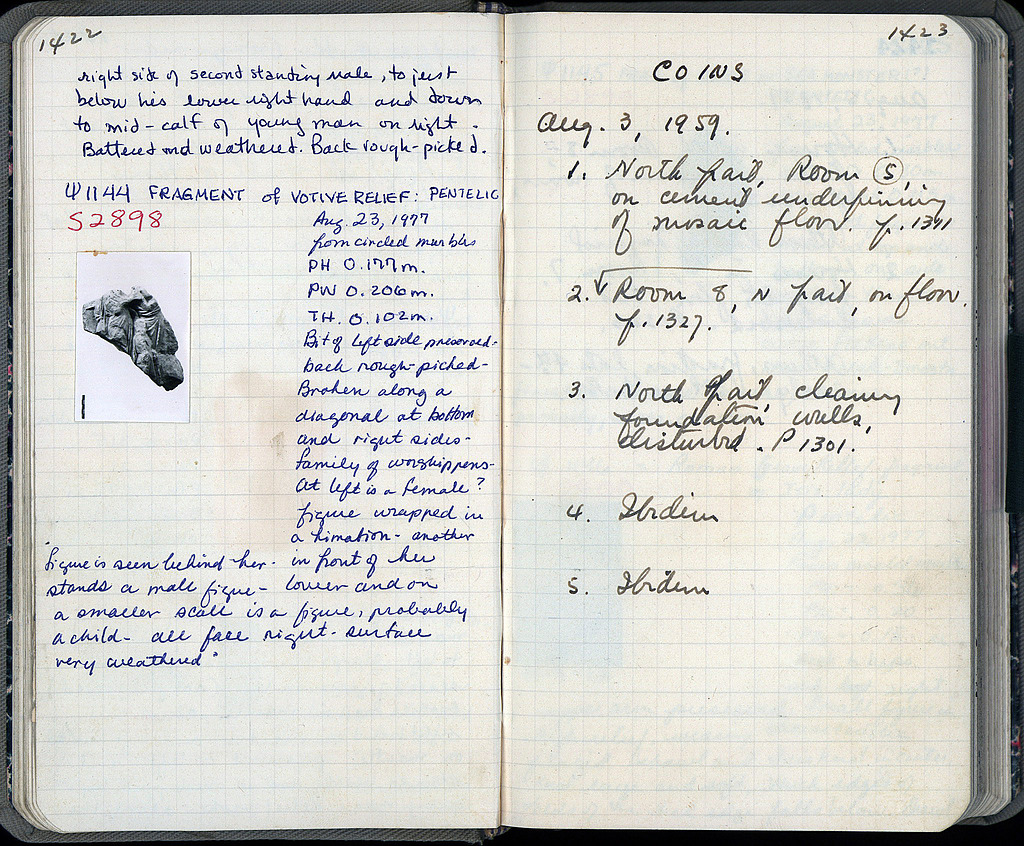 1422
right side of second standing male, to just
below his lower right hand and down
to mid-calf of young man on right.
Battered and weathered. Back rough-picked.
Ψ1144 FRAGMENT of VOTIVE RELIEF: PENTELIC
S2898
Aug. 23, 1977
from circled marbles
PH 0.177m.
PW 0.206m.
TH. 0.102m.
Bit of left side preserved-
back rough-picked-
Broken along a
diagonal at bottom
and right sides-
family of worshippers-
At left is a female?
figure wrapped in
a himation- another
figure is seen behind her- in front of her
stands a male figure- lower and on
a smaller scale is a figure, probably
a child- all face right- surface
very weathered"
1423
COINS
Aug. 3, 1959.
1. North part, Room 5,
on cement underpinning
of mosaic floor. p. 1391
2. √ Room 8, N part, on floor.
p. 1327.
3. North part, cleaning
foundation walls,
disturbed. P 1301.
4. Ibidem
5. Ibidem